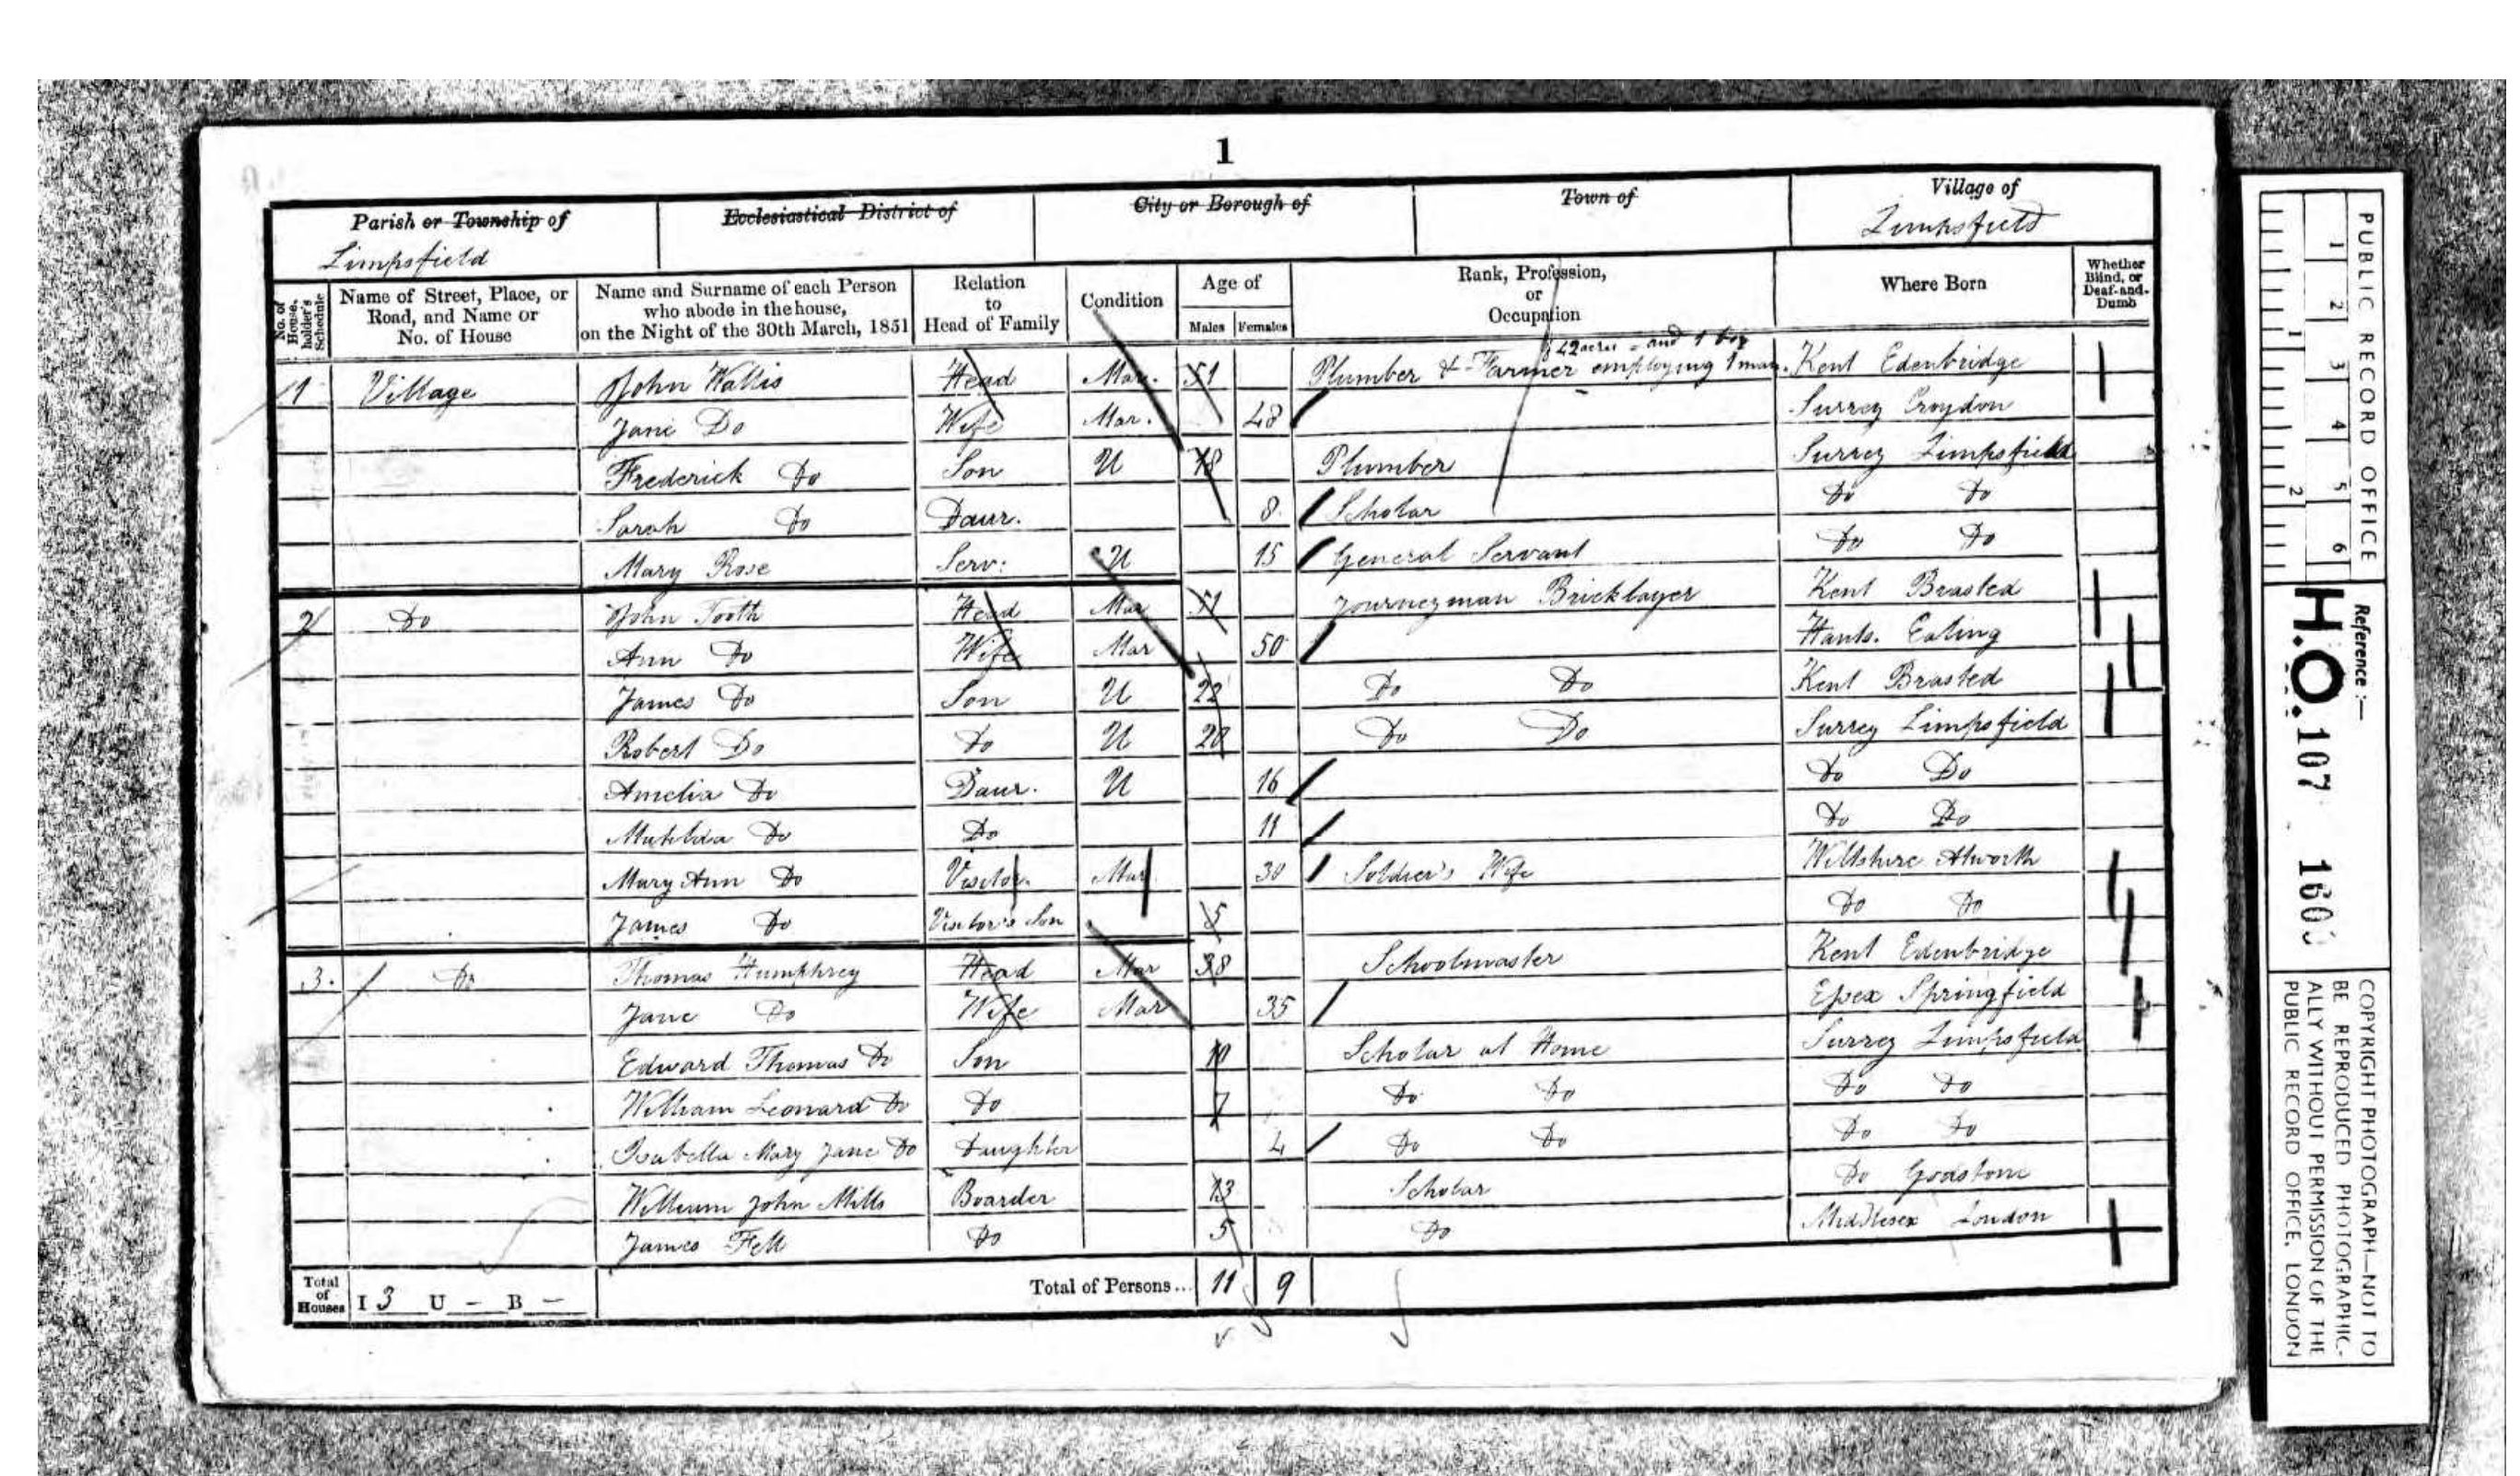 1
Parish or Township of
Limpsfield
Ecclesiastical District of
City or Borough of
Town of
Village of
Limpsfield
No. of House-holder's Schedule
Name of Street, Place, or Road, and Name or No. of House
Name and Surname of each Person who abode in the house, on the Night of the 30th March, 1851
Relation to Head of Family
Condition
Age of
Males Females
Rank, Profession, or Occupation
Where Born
Whether Blind, or Deaf-and-Dumb
of 42 acres - and 1 boy
1 Village John Wallis Head Mar. 51 Plumber & Farmer employing 1 man. Kent Edenbridge
Jane Do Wife Mar. 48 Surrey Croydon
Frederick Do Son U 18 Plumber Surrey Limpsfield
Sarah Do Daur. 8 Scholar Do Do
Mary Rose Serv: U 15 General Servant Do Do
2 Do John Tooth Head Mar 51 Journeyman Bricklayer Kent Brasted
Ann Do Wife Mar 50 Hants. Ealing
James Do Son U 22 Do Do Kent Brasted
Robert Do Do U 20 Do Do Surrey Limpsfield
Amelia Do Daur. U 16 Do Do
Matilda Do Do 11 Do Do
Mary Ann Do Visitor. Mar 30 Soldier's Wife Wiltshire Atworth
James Do Visitor's Son 5 Do Do
3. Do Thomas Humphrey Head Mar 38 Schoolmaster Kent Edenbridge
Jane Do Wife Mar 35 Essex Springfield
Edward Thomas Do Son 10 Scholar at Home Surrey Limpsfield
William Leonard Do Do 7 Do Do Do Do
Isabella Mary Jane Do Daughter 4 Do Do Do Do
William John Mills Boarder 13 Scholar Do Godstone
James Fell Do 5 Do Middlesex London
Total of Houses I 3 U - B - Total of Persons... 11 9
PUBLIC RECORD OFFICE
1 2 3 4 5 6
1 2
Reference:—
H.O. 107 160
COPYRIGHT PHOTOGRAPH—NOT TO
BE REPRODUCED PHOTOGRAPHIC-
ALLY WITHOUT PERMISSION OF THE
PUBLIC RECORD OFFICE, LONDON